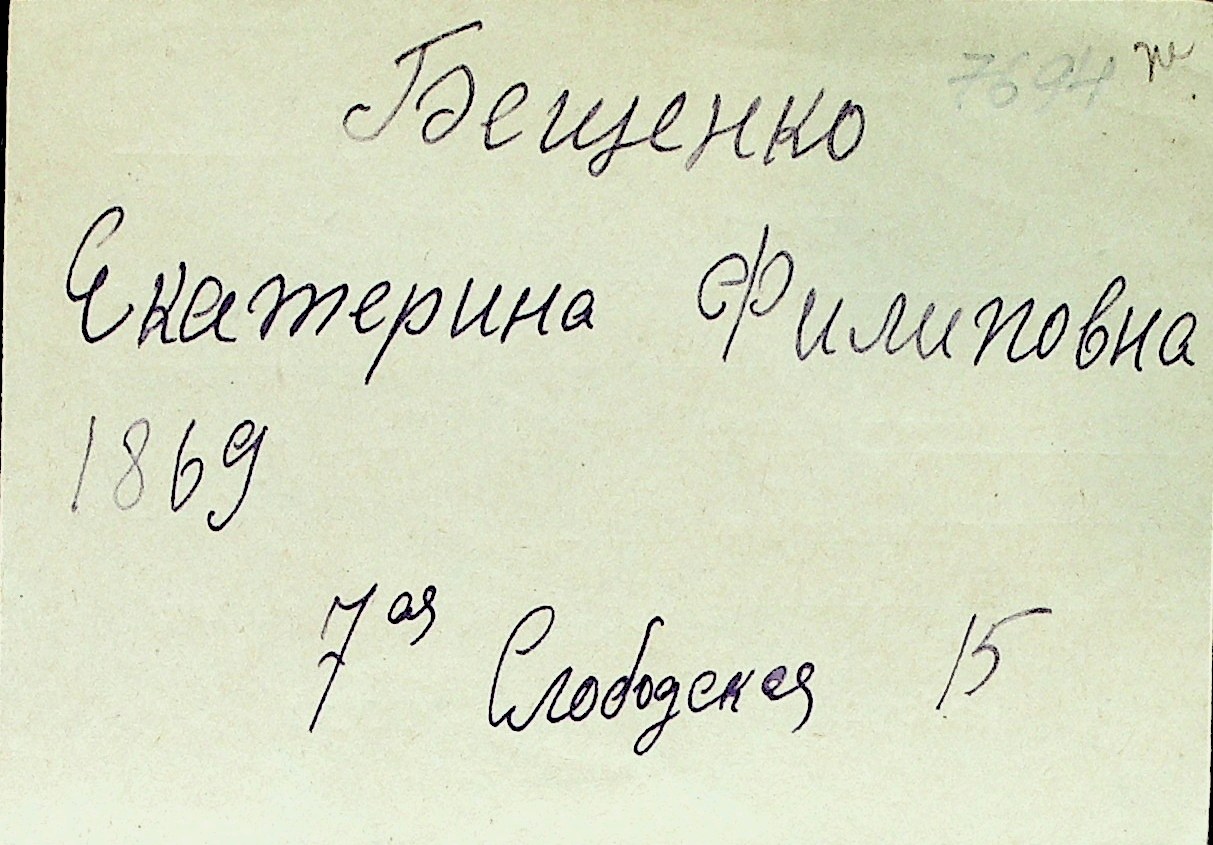 7694
Бещенко
Екатерина Филиповна
1869
7ая Слободская 15